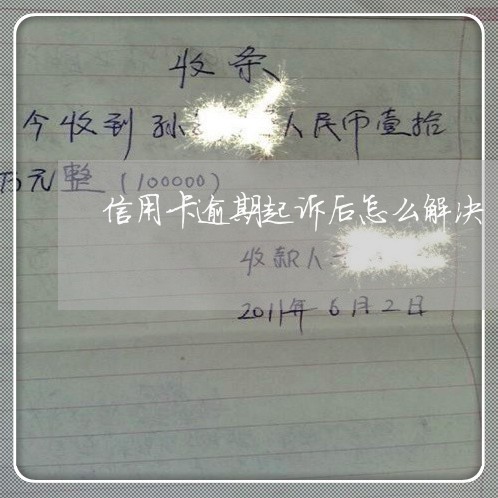 收条
今收到孙人民币壹拾
万元整(100000)
信用卡逾期起诉后怎么解决
收款人
2011年6月2日